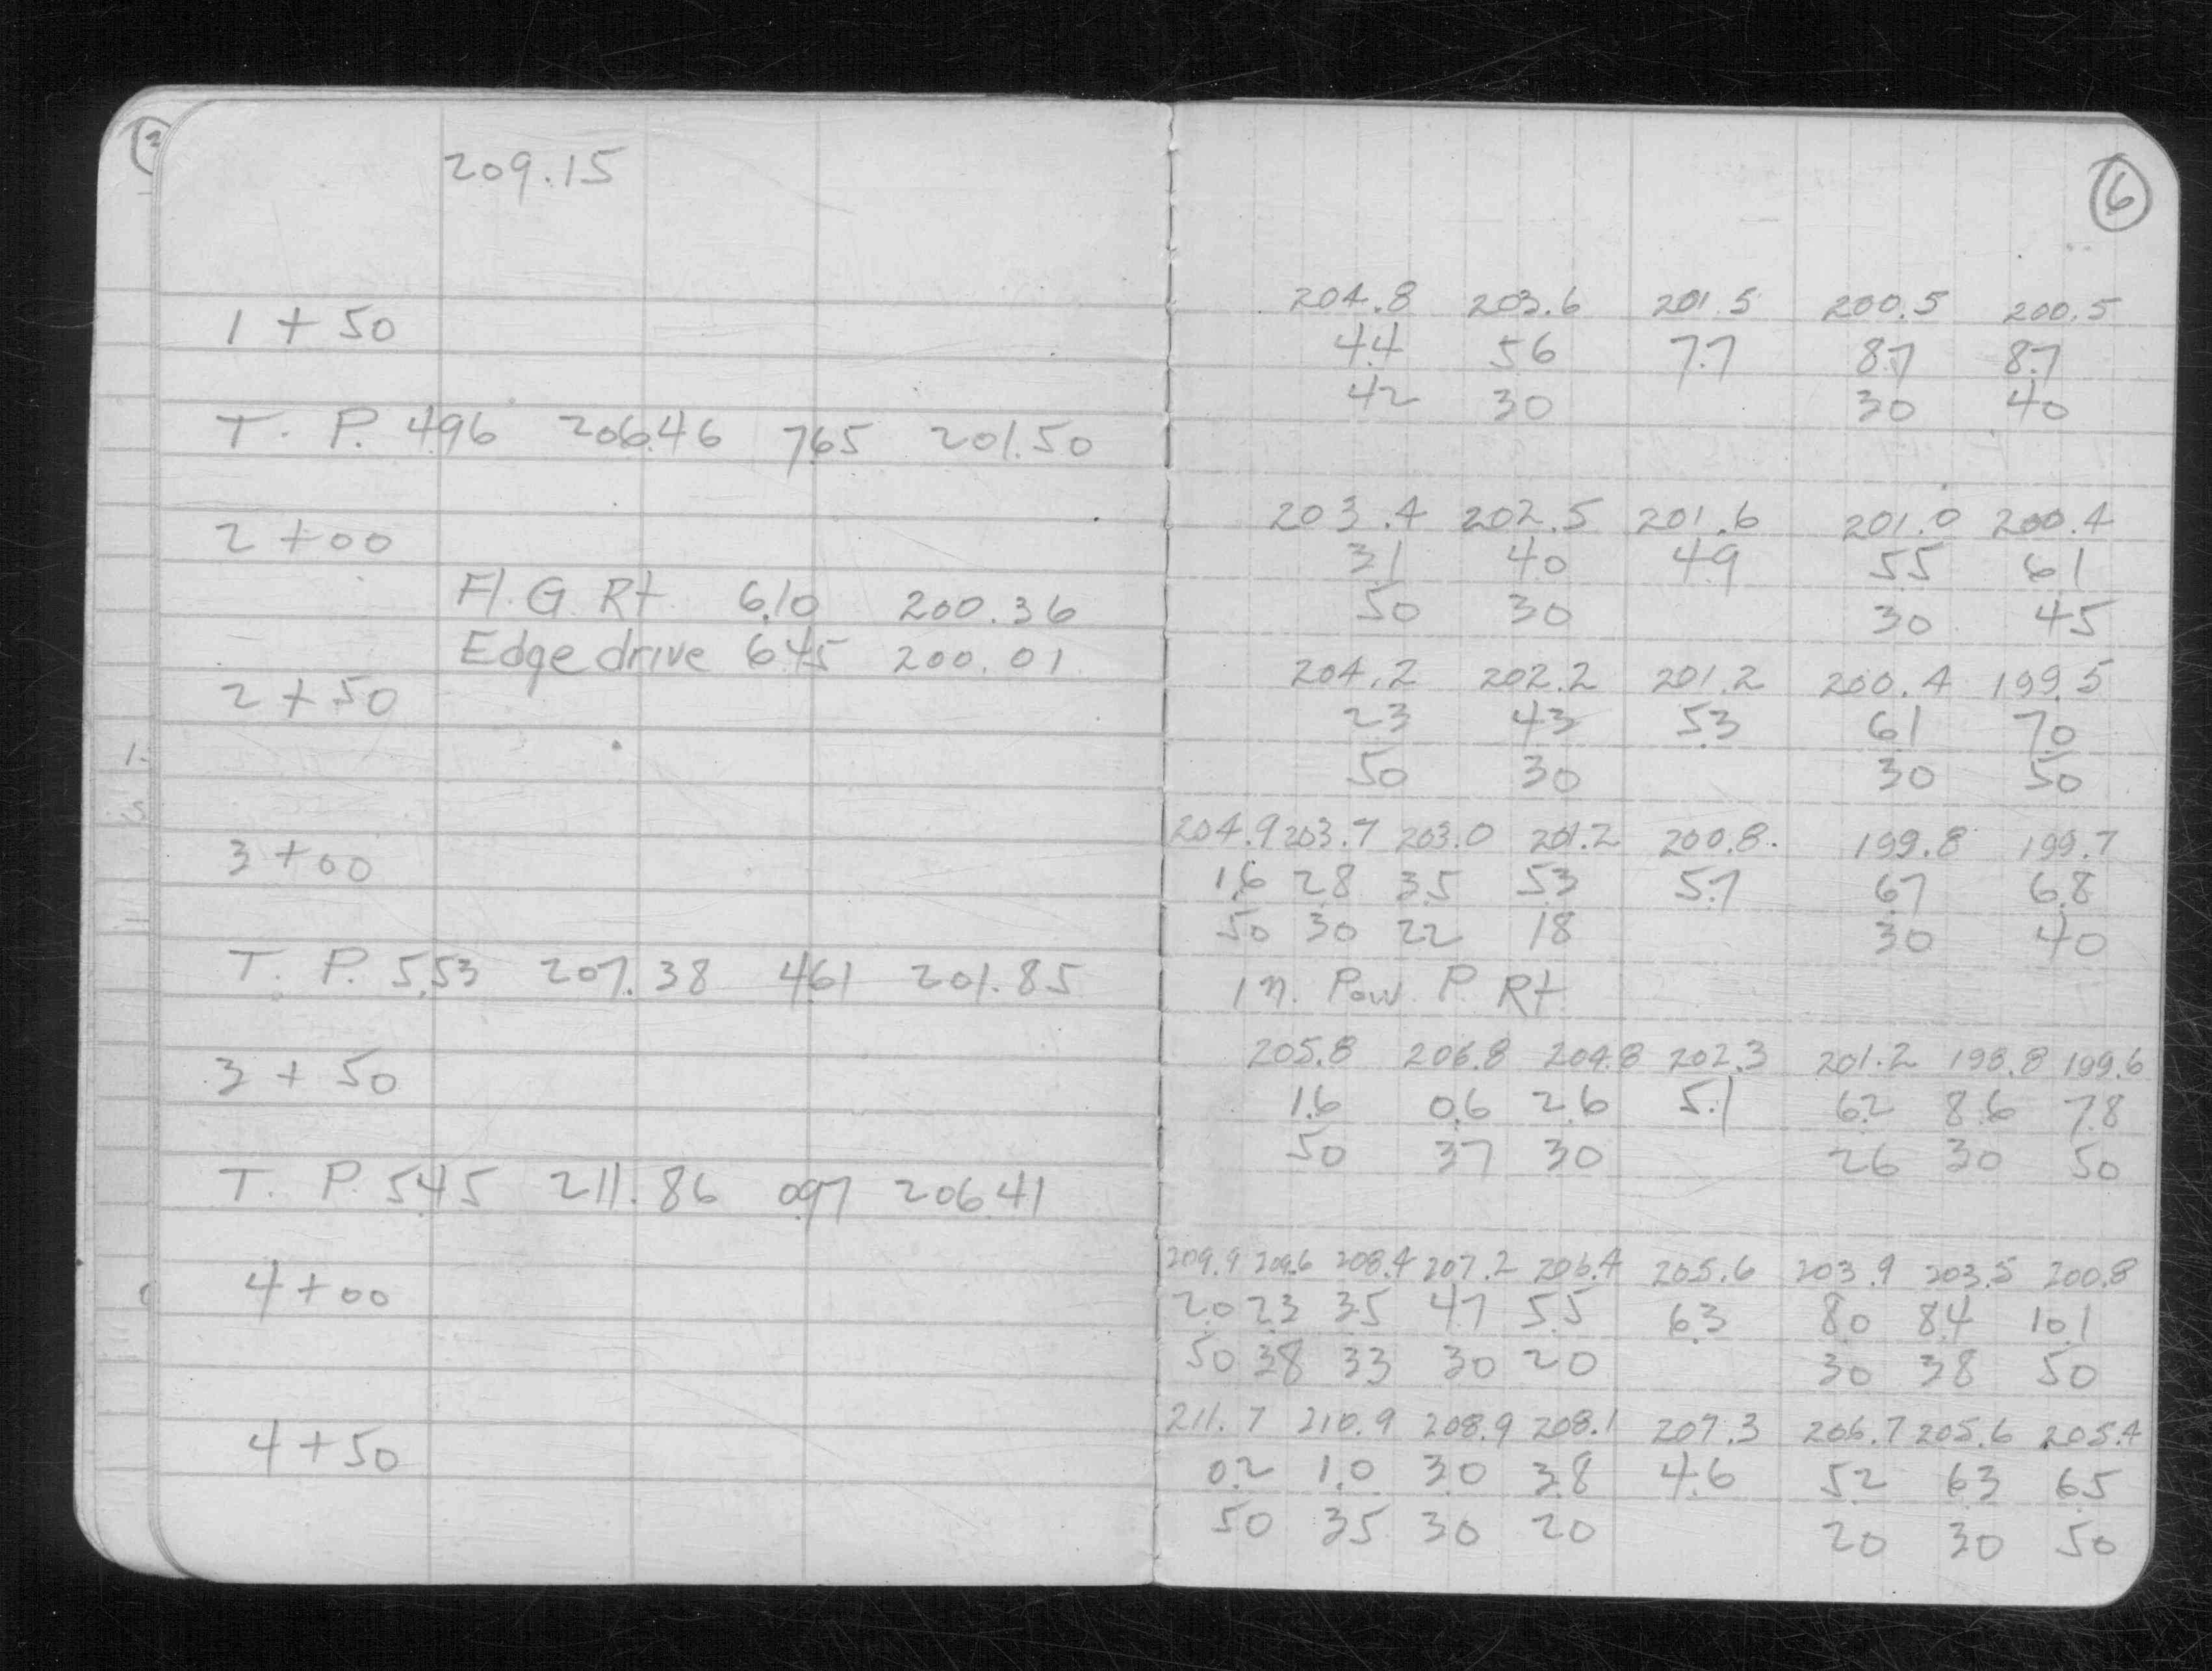 209.15
1 + 50
T. P. 4.96 206.46 7.65 201.50
2 + 00
Fl. G. Rt. 6.10 200.36
Edge drive 6.45 200.01
2 + 50
3 + 00
T. P. 5.53 207.38 4.61 201.85
3 + 50
T. P. 5.45 211.86 0.97 206.41
4 + 00
4 + 50
6
204.8 203.6 201.5 200.5 200.5
4.4 5.6 7.7 8.7 8.7
42 30 30 40
203.4 202.5 201.6 201.0 200.4
3.1 4.0 4.9 5.5 6.1
50 30 30 45
204.2 202.2 201.2 200.4 199.5
2.3 4.3 5.3 6.1 7.0
50 30 30 50
204.9 203.7 203.0 201.2 200.8 199.8 199.7
1.6 2.8 3.5 5.3 5.7 6.7 6.8
50 30 22 18 30 40
in. Pow. P. Rt.
205.8 206.8 204.8 202.3 201.2 198.8 199.6
1.6 0.6 2.6 5.1 6.2 8.6 7.8
50 37 30 26 30 50
209.9 209.6 208.4 207.2 206.4 205.6 203.9 203.5 200.8
2.0 2.3 3.5 4.7 5.5 6.3 8.0 8.4 10.1
50 38 33 30 20 30 38 50
211.7 210.9 208.9 208.1 207.3 206.7 205.6 205.4
0.2 1.0 3.0 3.8 4.6 5.2 6.3 6.5
50 35 30 20 20 30 50